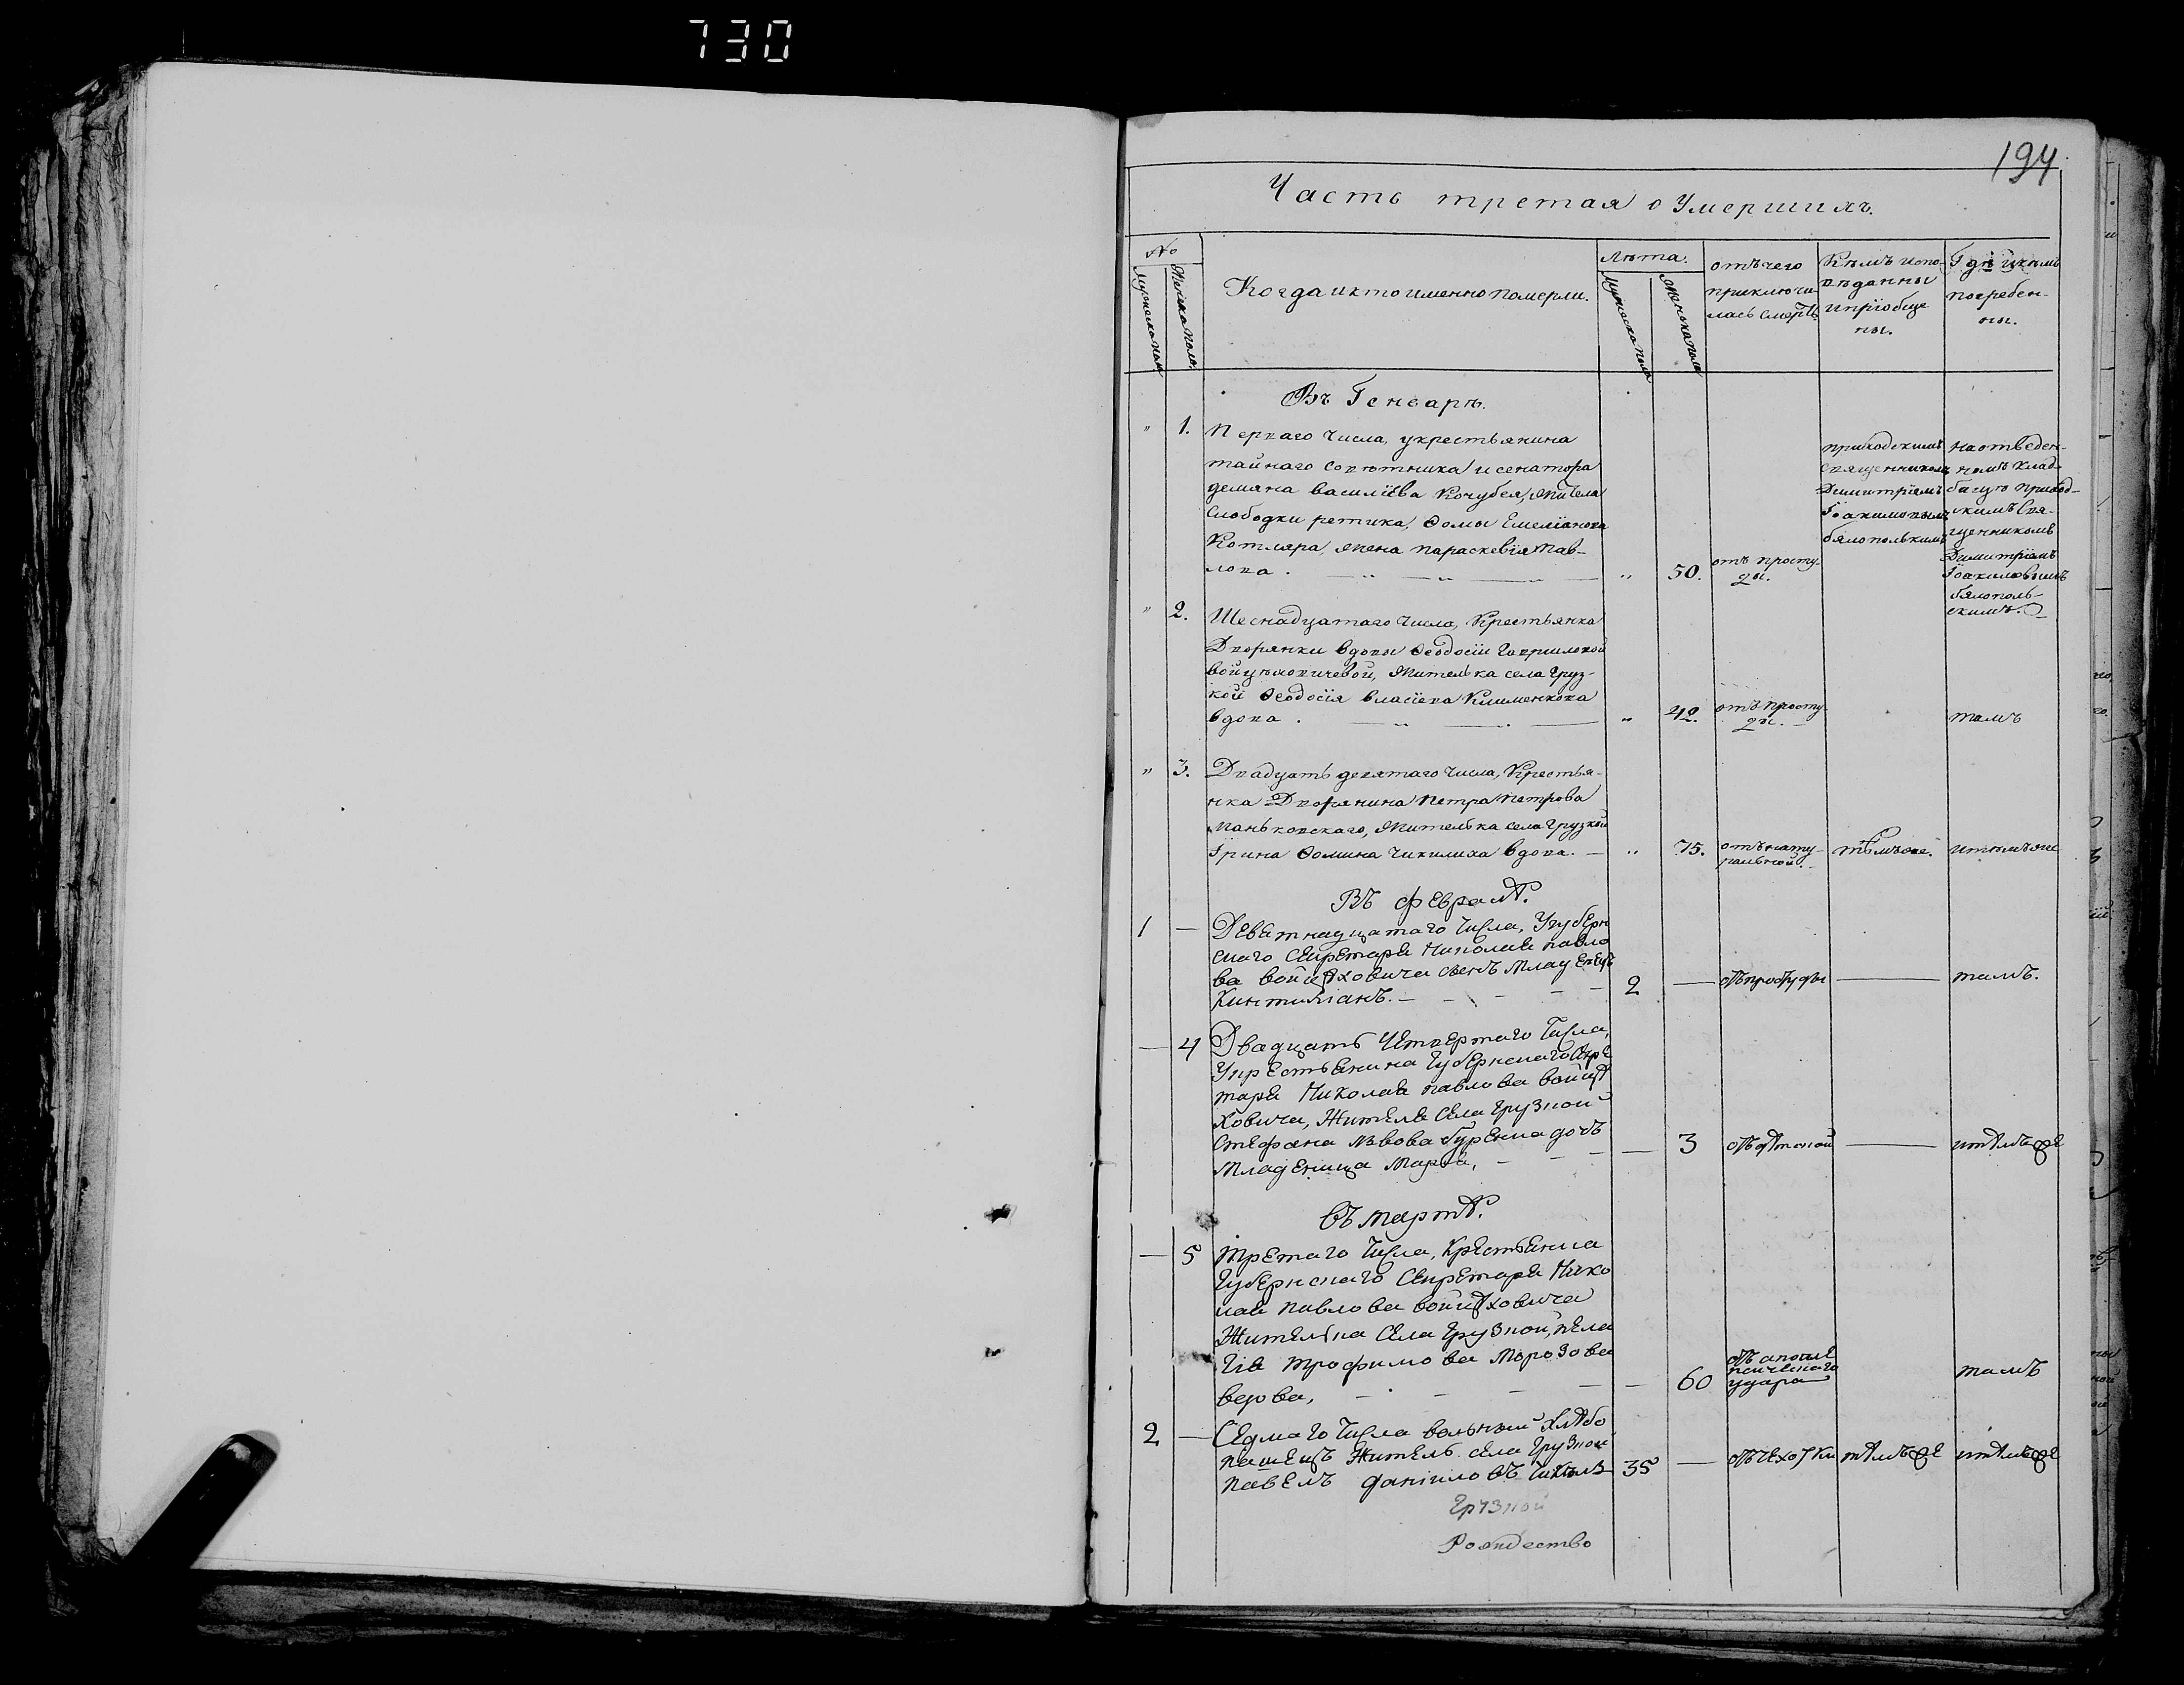 730
194
Часть третая о Умершихъ.
№
Мужеска пола
Женска пола
Когда и кто именно померли.
Лѣта.
Мужеска пола
Женска пола
отъ чего приключи-
лась смерть.
Кѣмъ испо-
вѣданны
и пріобще
ны.
Гдѣ и кѣмъ
погребен-
ны.
Въ Генварѣ.
" 1. Перваго числа, у крестьянина
тайнаго совѣтника и сенатора
демяна василіева Кочубея, жителя
Слободки ретика, Ѳомы Емеліянова
Котляра, жена параскевія Пав-
лова. " 50. отъ просту-
ды.
приходскимъ
Священникомъ
Димитріемъ
Іоакимовымъ
бялопольскимъ
на отведен-
номъ клад-
бищѣ приход-
скимъ Свя-
щенникомъ
Димитріемъ
Іоакимовымъ
бялополь-
скимъ.
" 2. Шеснадцатаго числа, Крестьянка
Дворянки вдовы Ѳеодосіи Гавриловой
войцѣховичевой, жителька села Груз-
кой Ѳеодосія власіева Клименкова
вдова. " 42. отъ просту-
ды. тамъ
" 3. Двадцать девятаго числа, Крестья-
нка Дворянина Петра Петрова
Маньковскаго, жителька села Грузкой
Ірина Ѳомина Чикилиха вдова. — " 75. отъ нату-
ральной. тѣмъ же. и тѣмъ же
Въ февралѣ.
1 — Девятнадцатаго Числа, У губерн
скаго Секретаря Николая павло
ва войцѣховича сынъ Младенецъ
Кинтиліанъ. — 2 — отъ простуды — тамъ.
— 4 Двадцать Четвертаго Числа,
У крестьянина Губернскаго Секре
таря Николая павлова войцѣ
ховича, Жителя Села Грузкой
Стефана Львова буренка дочь
Младеница Марія, — 3 отъ дѣтской — и тѣмъ же
Въ мартѣ.
— 5 Третаго Числа, Крестьянка
Губернскаго Секретаря Нико
лая павлова войцѣховича
Жителька Села Грузкой, пела
гія трофимова Морозова
вдова, — 60 отъ апопле
ксическаго
удара тамъ
2 — Седмаго Числа вольный хлѣбо
пашецъ Житель села Грузкой
павелъ даніиловъ 35 — отъ чехотки тѣмъ же и тѣмъ же
Грузкой
Рождество